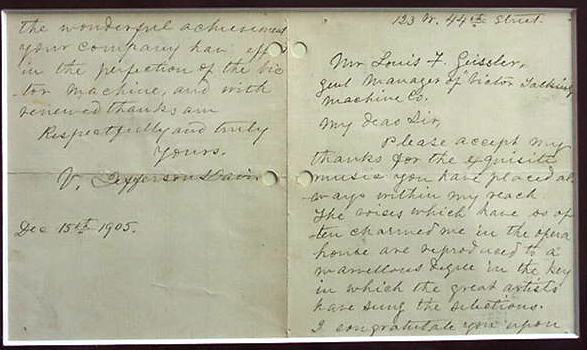 123 W. 44th Street.
Mr Louis F. Geissler,
genl Manager of Victor Talking
Machine Co.
My dear Sir,
Please accept my
thanks for the exquisite
music you have placed al-
ways within my reach.
The voises which have so of
ten charmed me in the opera
house are reproduced to a
marvellous degree in the key
in which the great artists
have sung the selections.
I congratulate you upon
the wonderful achievement
your company have
in the perfection of the Vic
tor machine, and with
renewed thanks am
Respectfully and truly
Yours.
V. Jefferson Davis
Dec 15th 1905.